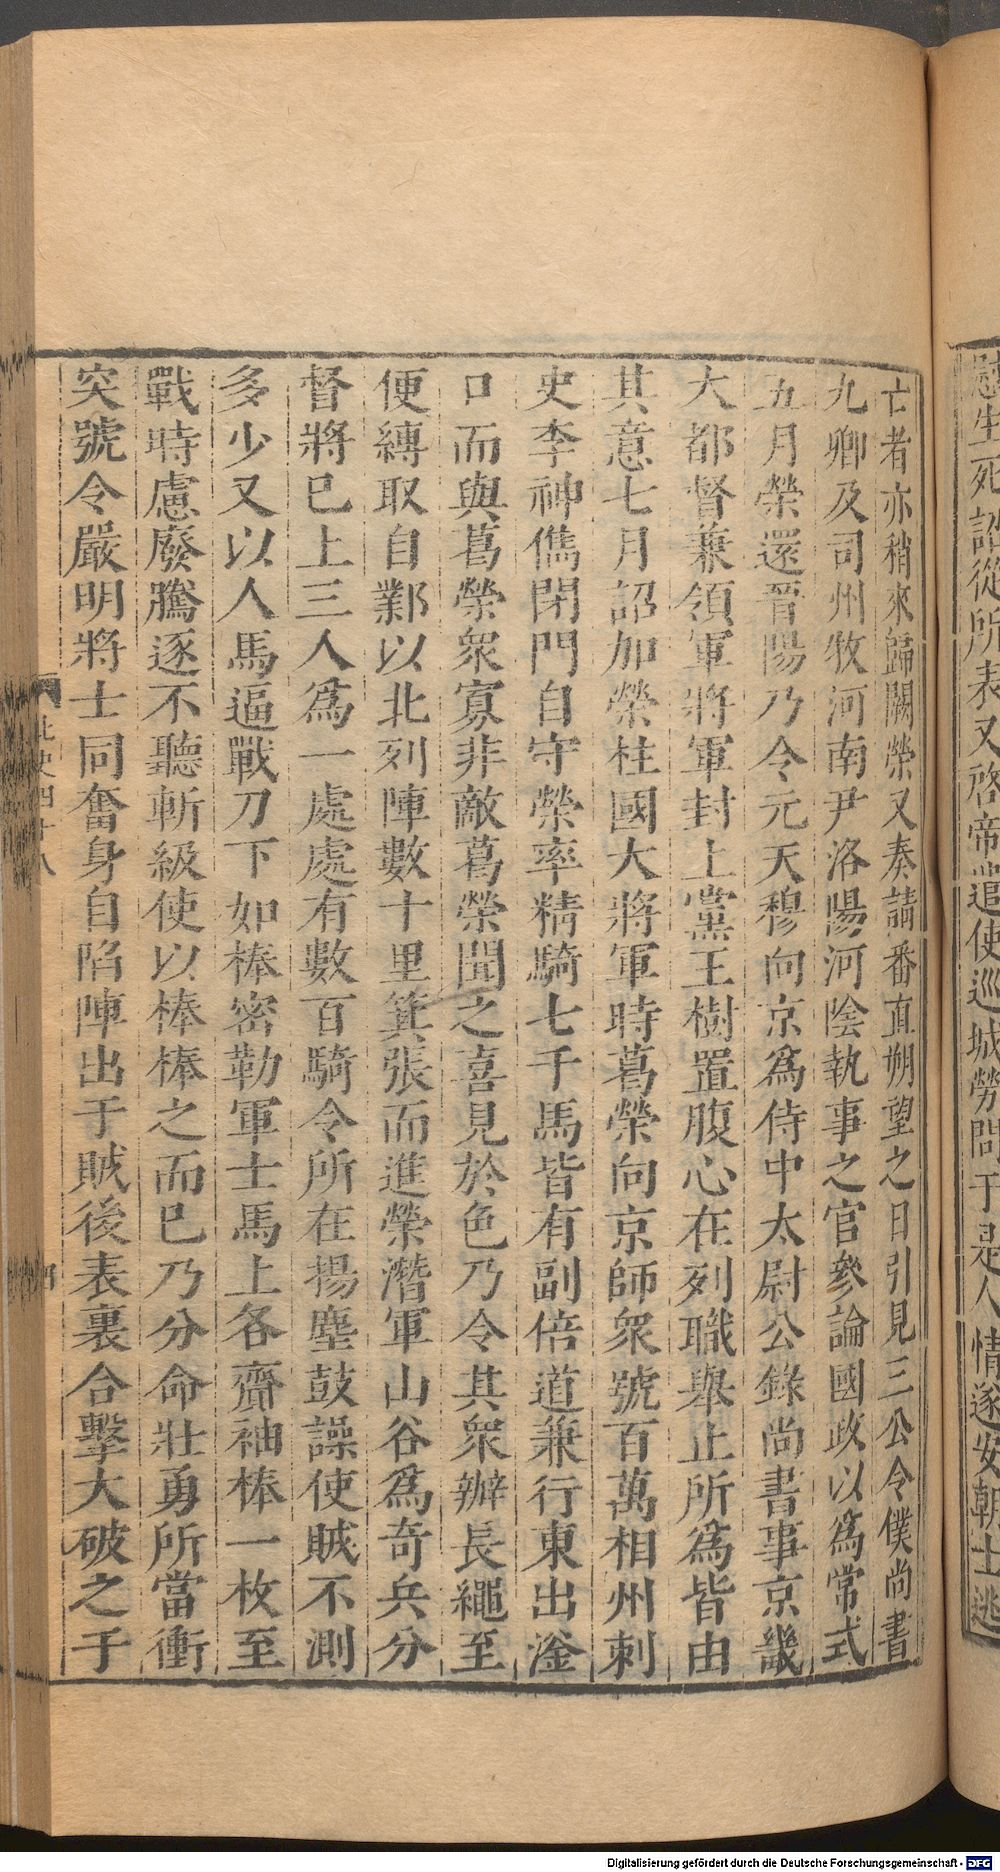 慰生死詔從所表又啓帝遣使巡城勞問于是人情遂安朝士逃
亡者亦稍來歸闕榮又奏請番直朔望之日引見三公令僕尚書
九卿及司州牧河南尹洛陽河陰執事之官參論國政以爲常式
五月榮還晉陽乃令元天穆向京爲侍中太尉公錄尚書事京畿
大都督兼領軍將軍封上黨王樹置腹心在列職舉止所爲皆由
其意七月詔加榮柱國大將軍時葛榮向京師衆號百萬相州刺
史李神儁閉門自守榮率精騎七千馬皆有副倍道兼行東出滏
口而與葛榮衆寡非敵葛榮聞之喜見於色乃令其衆辦長繩至
便縛取自鄴以北列陣數十里箕張而進榮潛軍山谷爲奇兵分
督將已上三人爲一處處有數百騎令所在揚塵鼓譟使賊不測
多少又以人馬逼戰刀下如棒密勒軍士馬上各齎袖棒一枚至
戰時慮廢騰逐不聽斬級使以棒棒之而已乃分命壯勇所當衝
突號令嚴明將士同奮身自陷陣出于賊後表裏合擊大破之于
北史四十八
四
Digitalisierung gefördert durch die Deutsche Forschungsgemeinschaft - DFG